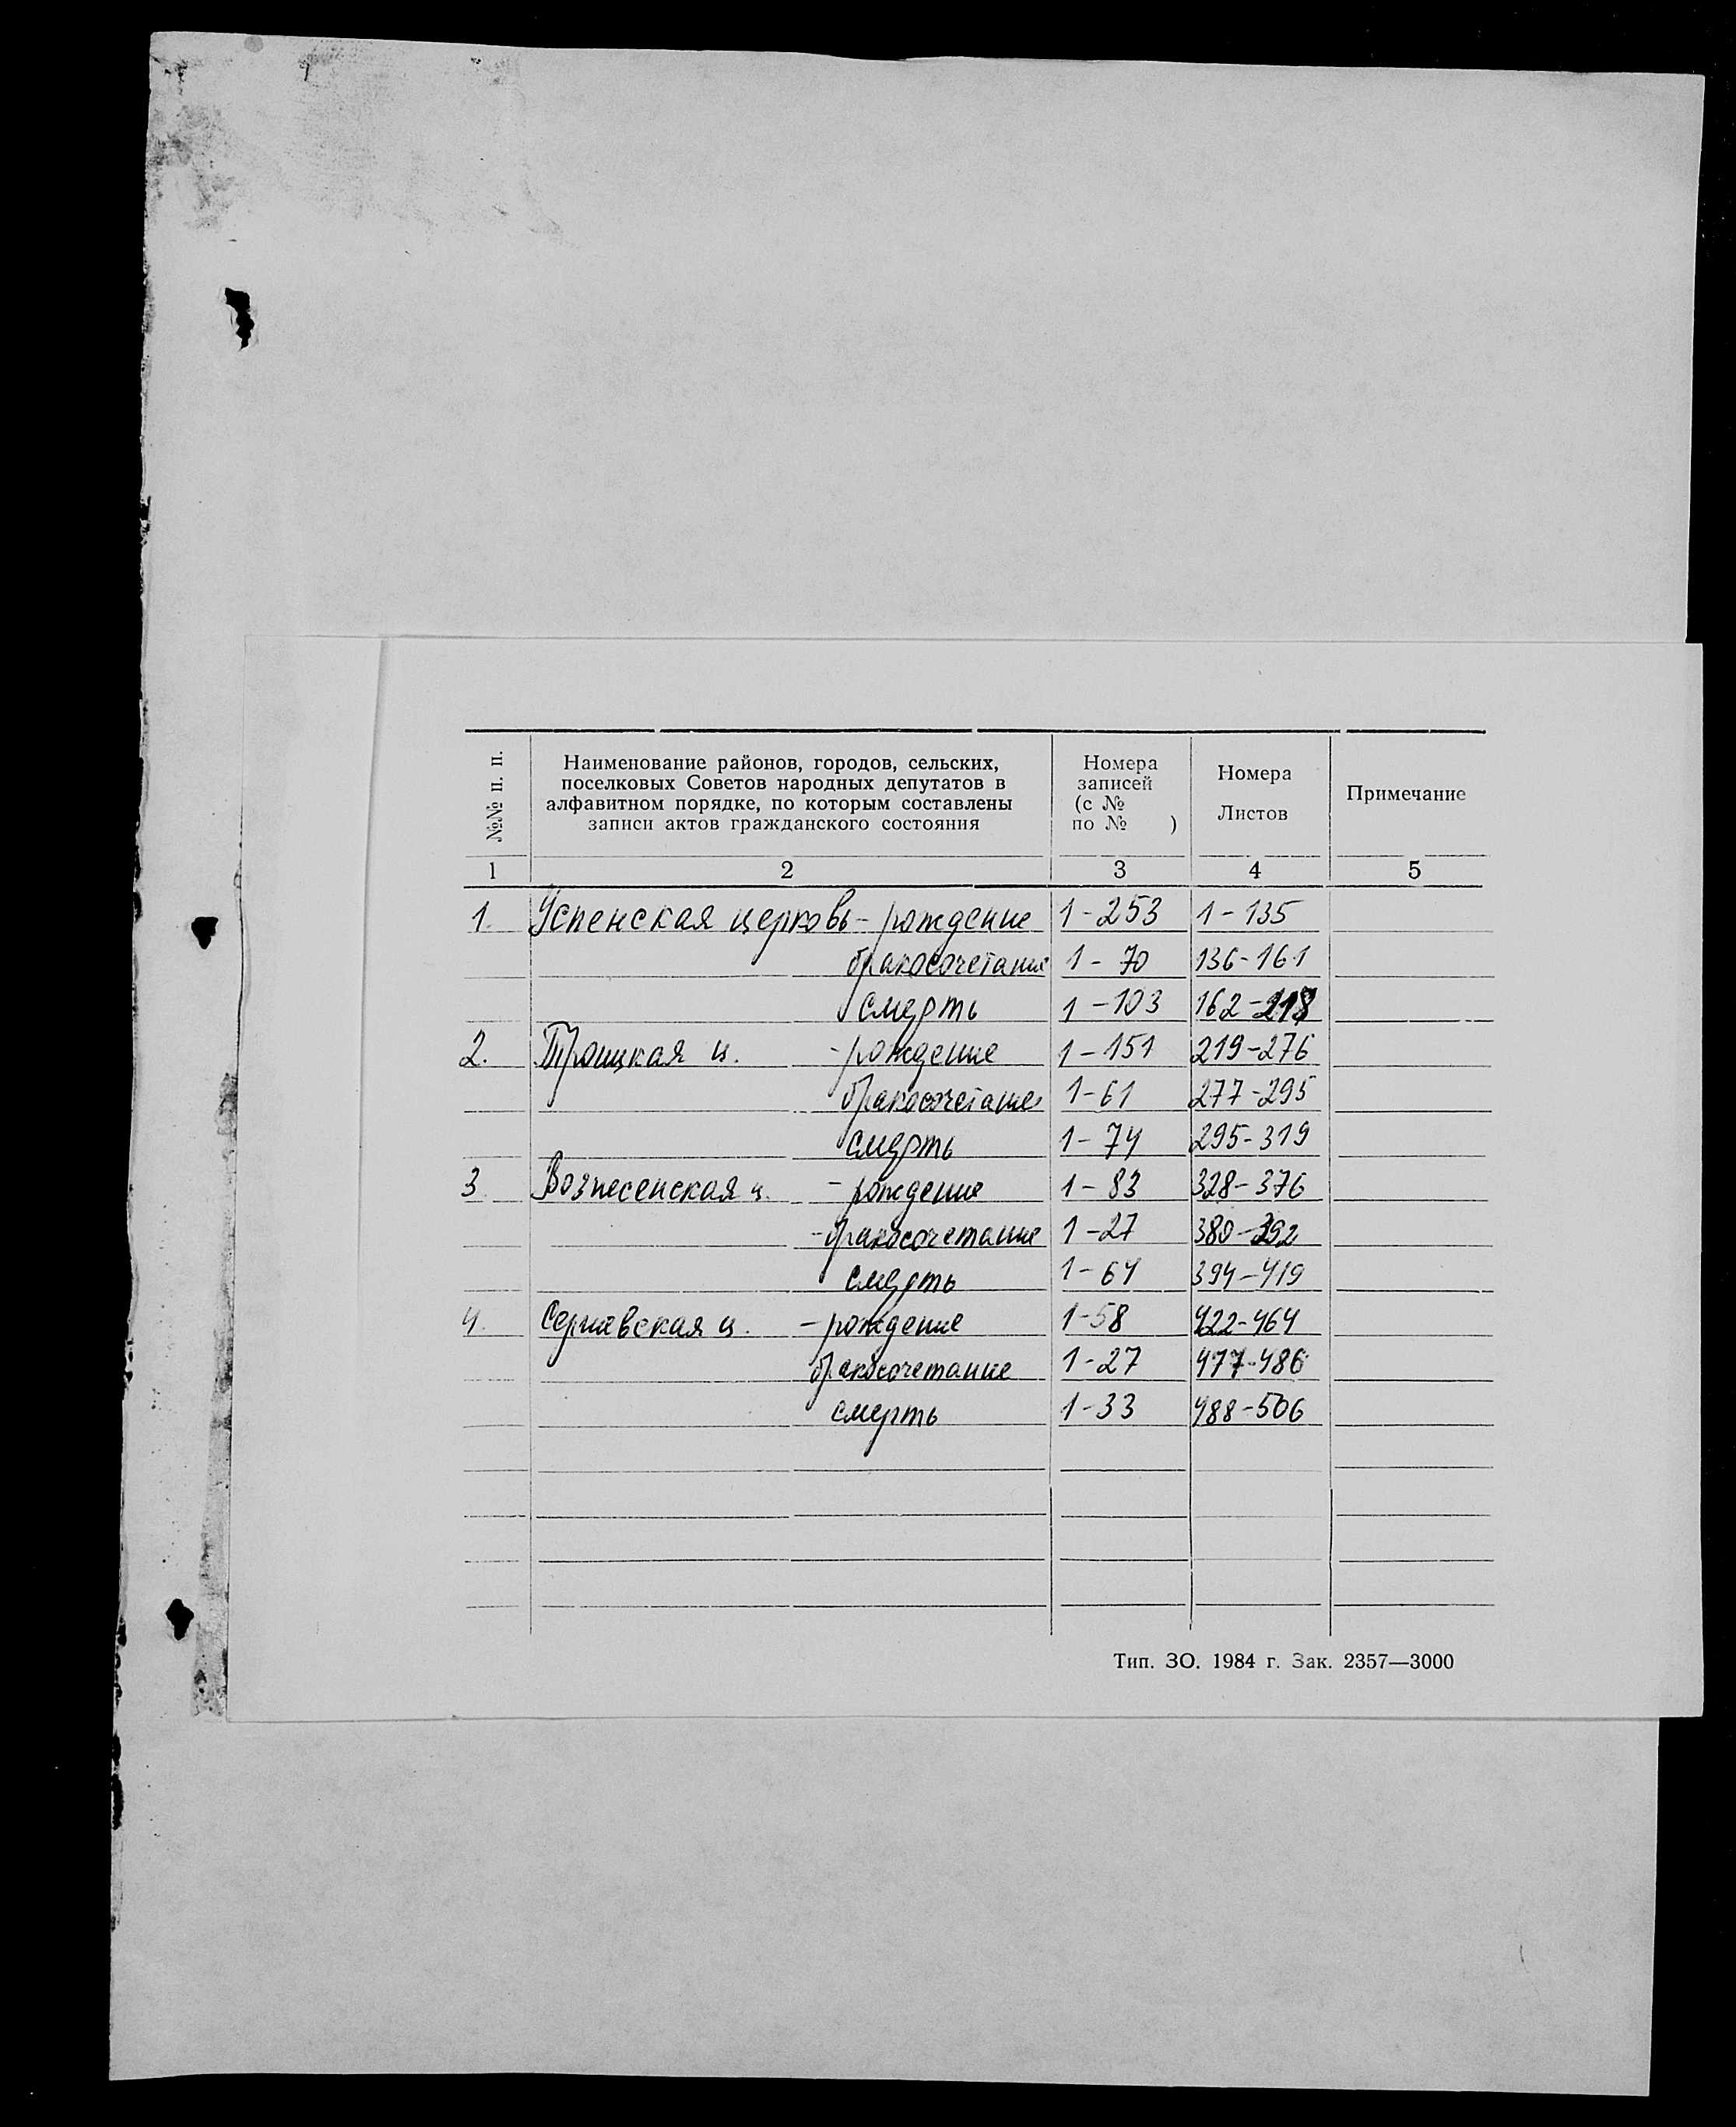 №№ п. п.
Наименование районов, городов, сельских,
поселковых Советов народных депутатов в
алфавитном порядке, по которым составлены
записи актов гражданского состояния
Номера
записей
(с №
по № )
Номера
Листов
Примечание
1 2 3 4 5
1. Успенская церковь - рождение 1-253 1-135
бракосочетание 1-70 136-161
смерть 1-103 162-218
2. Троицкая ц. - рождение 1-151 219-276
бракосочетание 1-61 277-295
смерть 1-74 295-319
3 Вознесенская ц. - рождение 1-83 328-376
- бракосочетание 1-27 380-392
смерть 1-64 394-419
4. Сергиевская ц. - рождение 1-58 422-464
бракосочетание 1-27 477-486
смерть 1-33 488-506
Тип. ЗО. 1984 г. Зак. 2357—3000